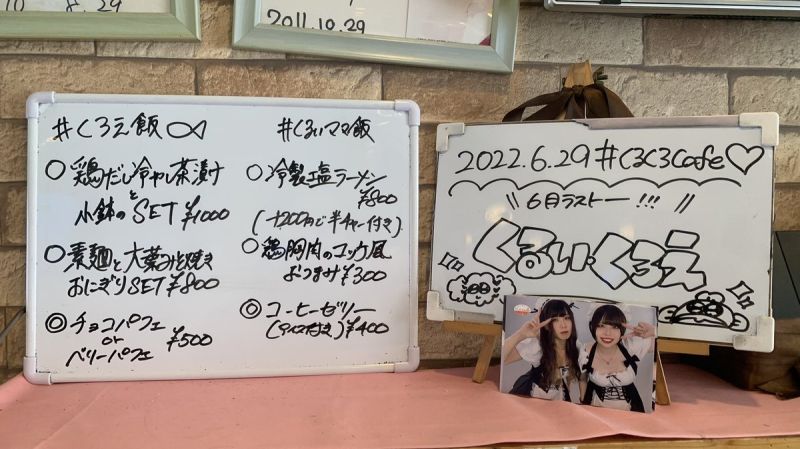 8.29
2011.10.29
#くろえ飯
○鶏だし冷やし茶漬け
と
小鉢のSET ¥1000
○素麺と大葉みそ焼き
おにぎりSET ¥800
◎チョコパフェ
or
ベリーパフェ
¥500
#くるいママ飯
○冷製塩ラーメン
¥800
(+200円で半チャー付き)
○鶏胸肉のユッケ風
おつまみ ¥300
◎コーヒーゼリー
(アイス付き) ¥400
2022.6.29 #くるくるcafe♡
\\ 6月ラストー!!! //
くるい・くろえ